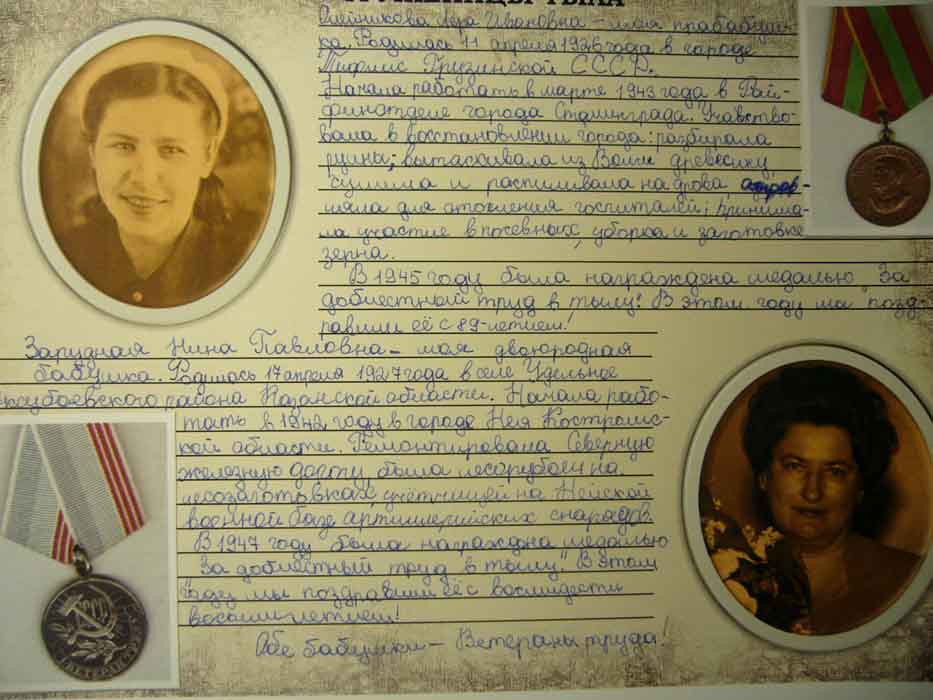 ТЫЛА
Олейникова Лера Ивановна – моя прабабуш-
ка. Родилась 11 апреля 1926 года в городе
Тифлис Грузинской СССР.
Начала работать в марте 1943 года в Рай-
финотделе города Сталинграда. Учавство-
вала в восстановлении города: разбирала
руины; вытаскивала из Волги древесину,
сушила и распиливала на дрова отправ-
ляла для отопления госпиталей; принима-
ла участие в посевных, уборка и заготовке
зерна.
В 1945 году была награждена медалью "За
доблестный труд в тылу". В этом году мы позд-
равили её с 89-летием!
Зарудная Нина Павловна – моя двоюродная
бабушка. Родилась 17 апреля 1927 года в селе Удельное
района Казанской области. Начала рабо-
тать в 1942 году в городе Нея Костромс-
кой области. Ремонтировала Северную
железную дорогу, была лесорубом на
лесозаготовках, учётчицей на Нейской
военной базе артиллерийских снарядов.
В 1947 году была награждена медалью
"За доблестный труд в тылу". В этом
году мы поздравили её с восмидести
восьмилетием!
Обе бабушки – Ветераны труда!